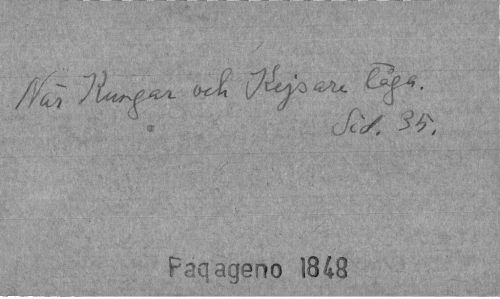 När Kungar och Kejsare tåga.
Sid. 35.
Papageno 1848